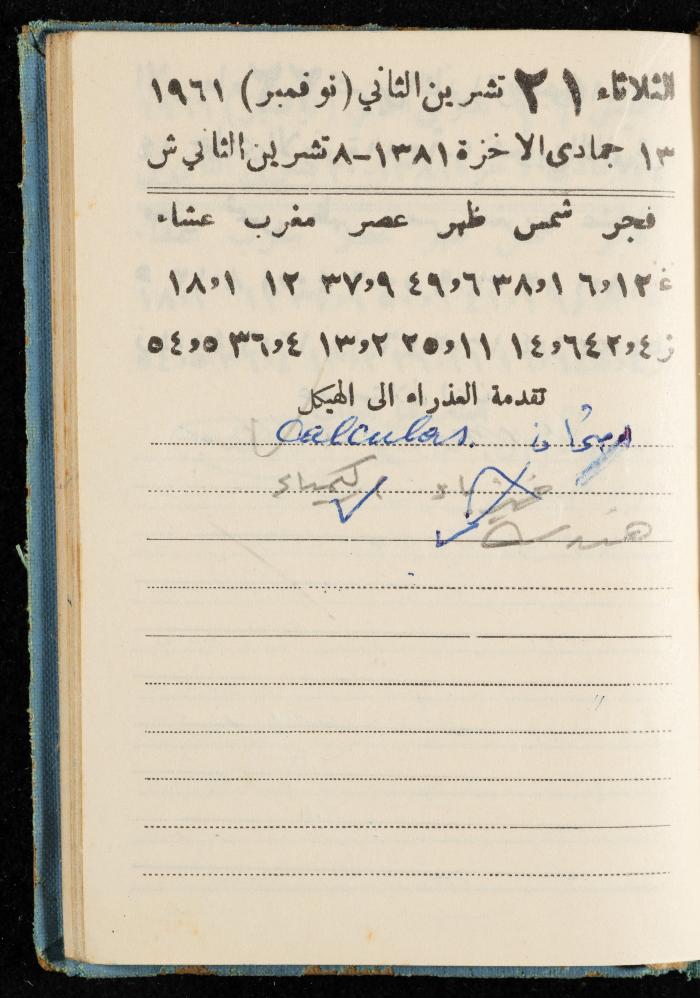 الثلاثاء ٢١ تشرين الثاني (نوفمبر) ١٩٦١
١٣ جمادى الاخرة ١٣٨١-٨ تشرين الثاني ش
فجر شمس ظهر عصر مغرب عشاء
غ ١٢و١ ٦و١ ٣٨و٦ ٤٩و٩ ٣٧و١٢ ١و١٨
ز ٤و٤٢ ٦و١٤ ١١و٢٥ ٢و١٣ ٤و٣٦ ٥و٥٤
تقدمة العذراء الى الهيكل
امتحان Calculas.
فيزياء كيمياء
هندسة